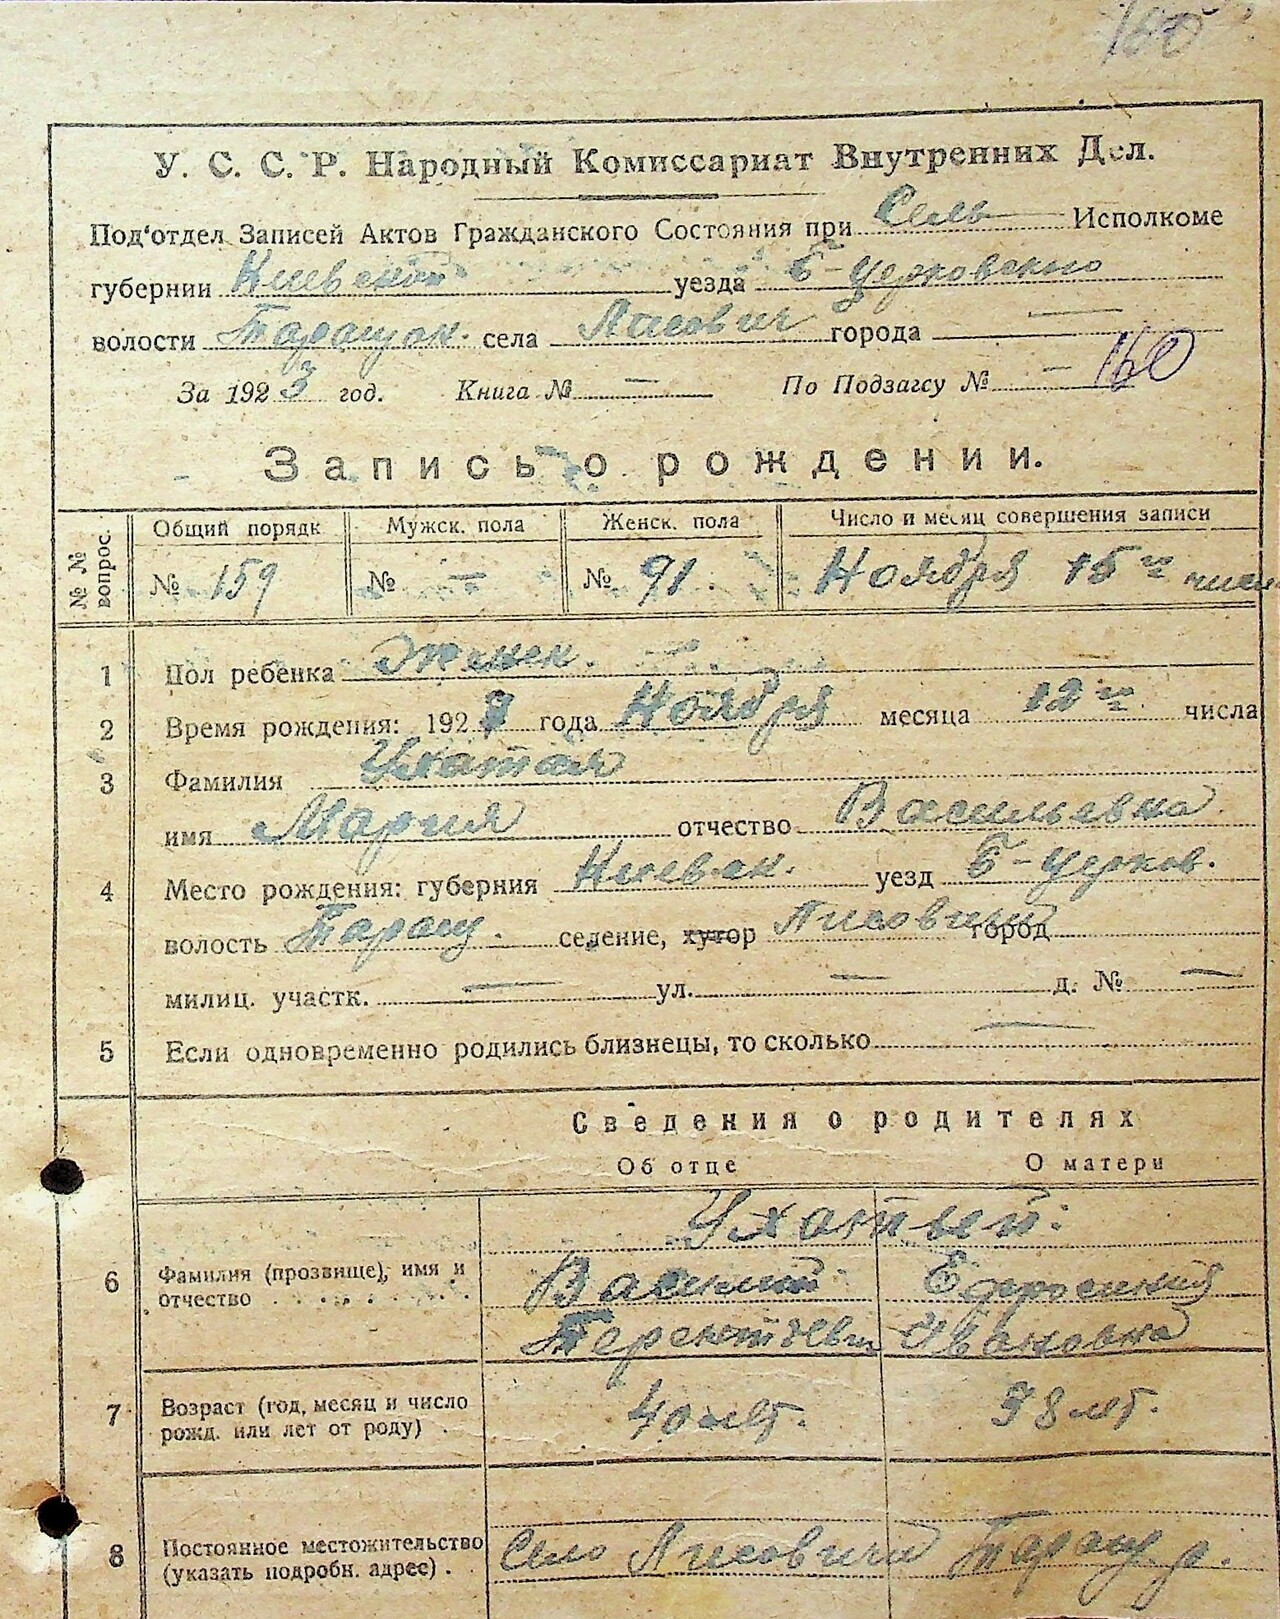 160
У. С. С. Р. Народный Комиссариат Внутренних Дел.
Под'отдел Записей Актов Гражданского Состояния при Сель Исполкоме
губернии Киевской уезда Б-Церковского
волости Таращан. села Лисович города —
За 1923 год. Книга № — По Подзагсу № — 160
Запись о рождении.
№ № вопрос. Общий порядк Мужск. пола Женск. пола Число и месяц совершения записи
№ 159 № — № 91. Ноября 15го числа
1 Пол ребенка Женск.
2 Время рождения: 1923 года Ноября месяца 12го числа
3 Фамилия Ухатая
имя Мария отчество Васильевна
4 Место рождения: губерния Киевск. уезд Б-Церков.
волость Таращ. селение, хутор Лисовичи город
милиц. участк. — ул. — д. № —
5 Если одновременно родились близнецы, то сколько —
Сведения о родителях
Об отце О матери
Ухатый.
6 Фамилия (прозвище), имя и Василий Ефросиния
отчество . . . . . . . Терентиевич Ивановна
7 Возраст (год, месяц и число 40 лет. 38 лет.
рожд. или лет от роду) .
8 Постоянное местожительство Село Лисовичи Таращ. р.
(указать подробн. адрес) .